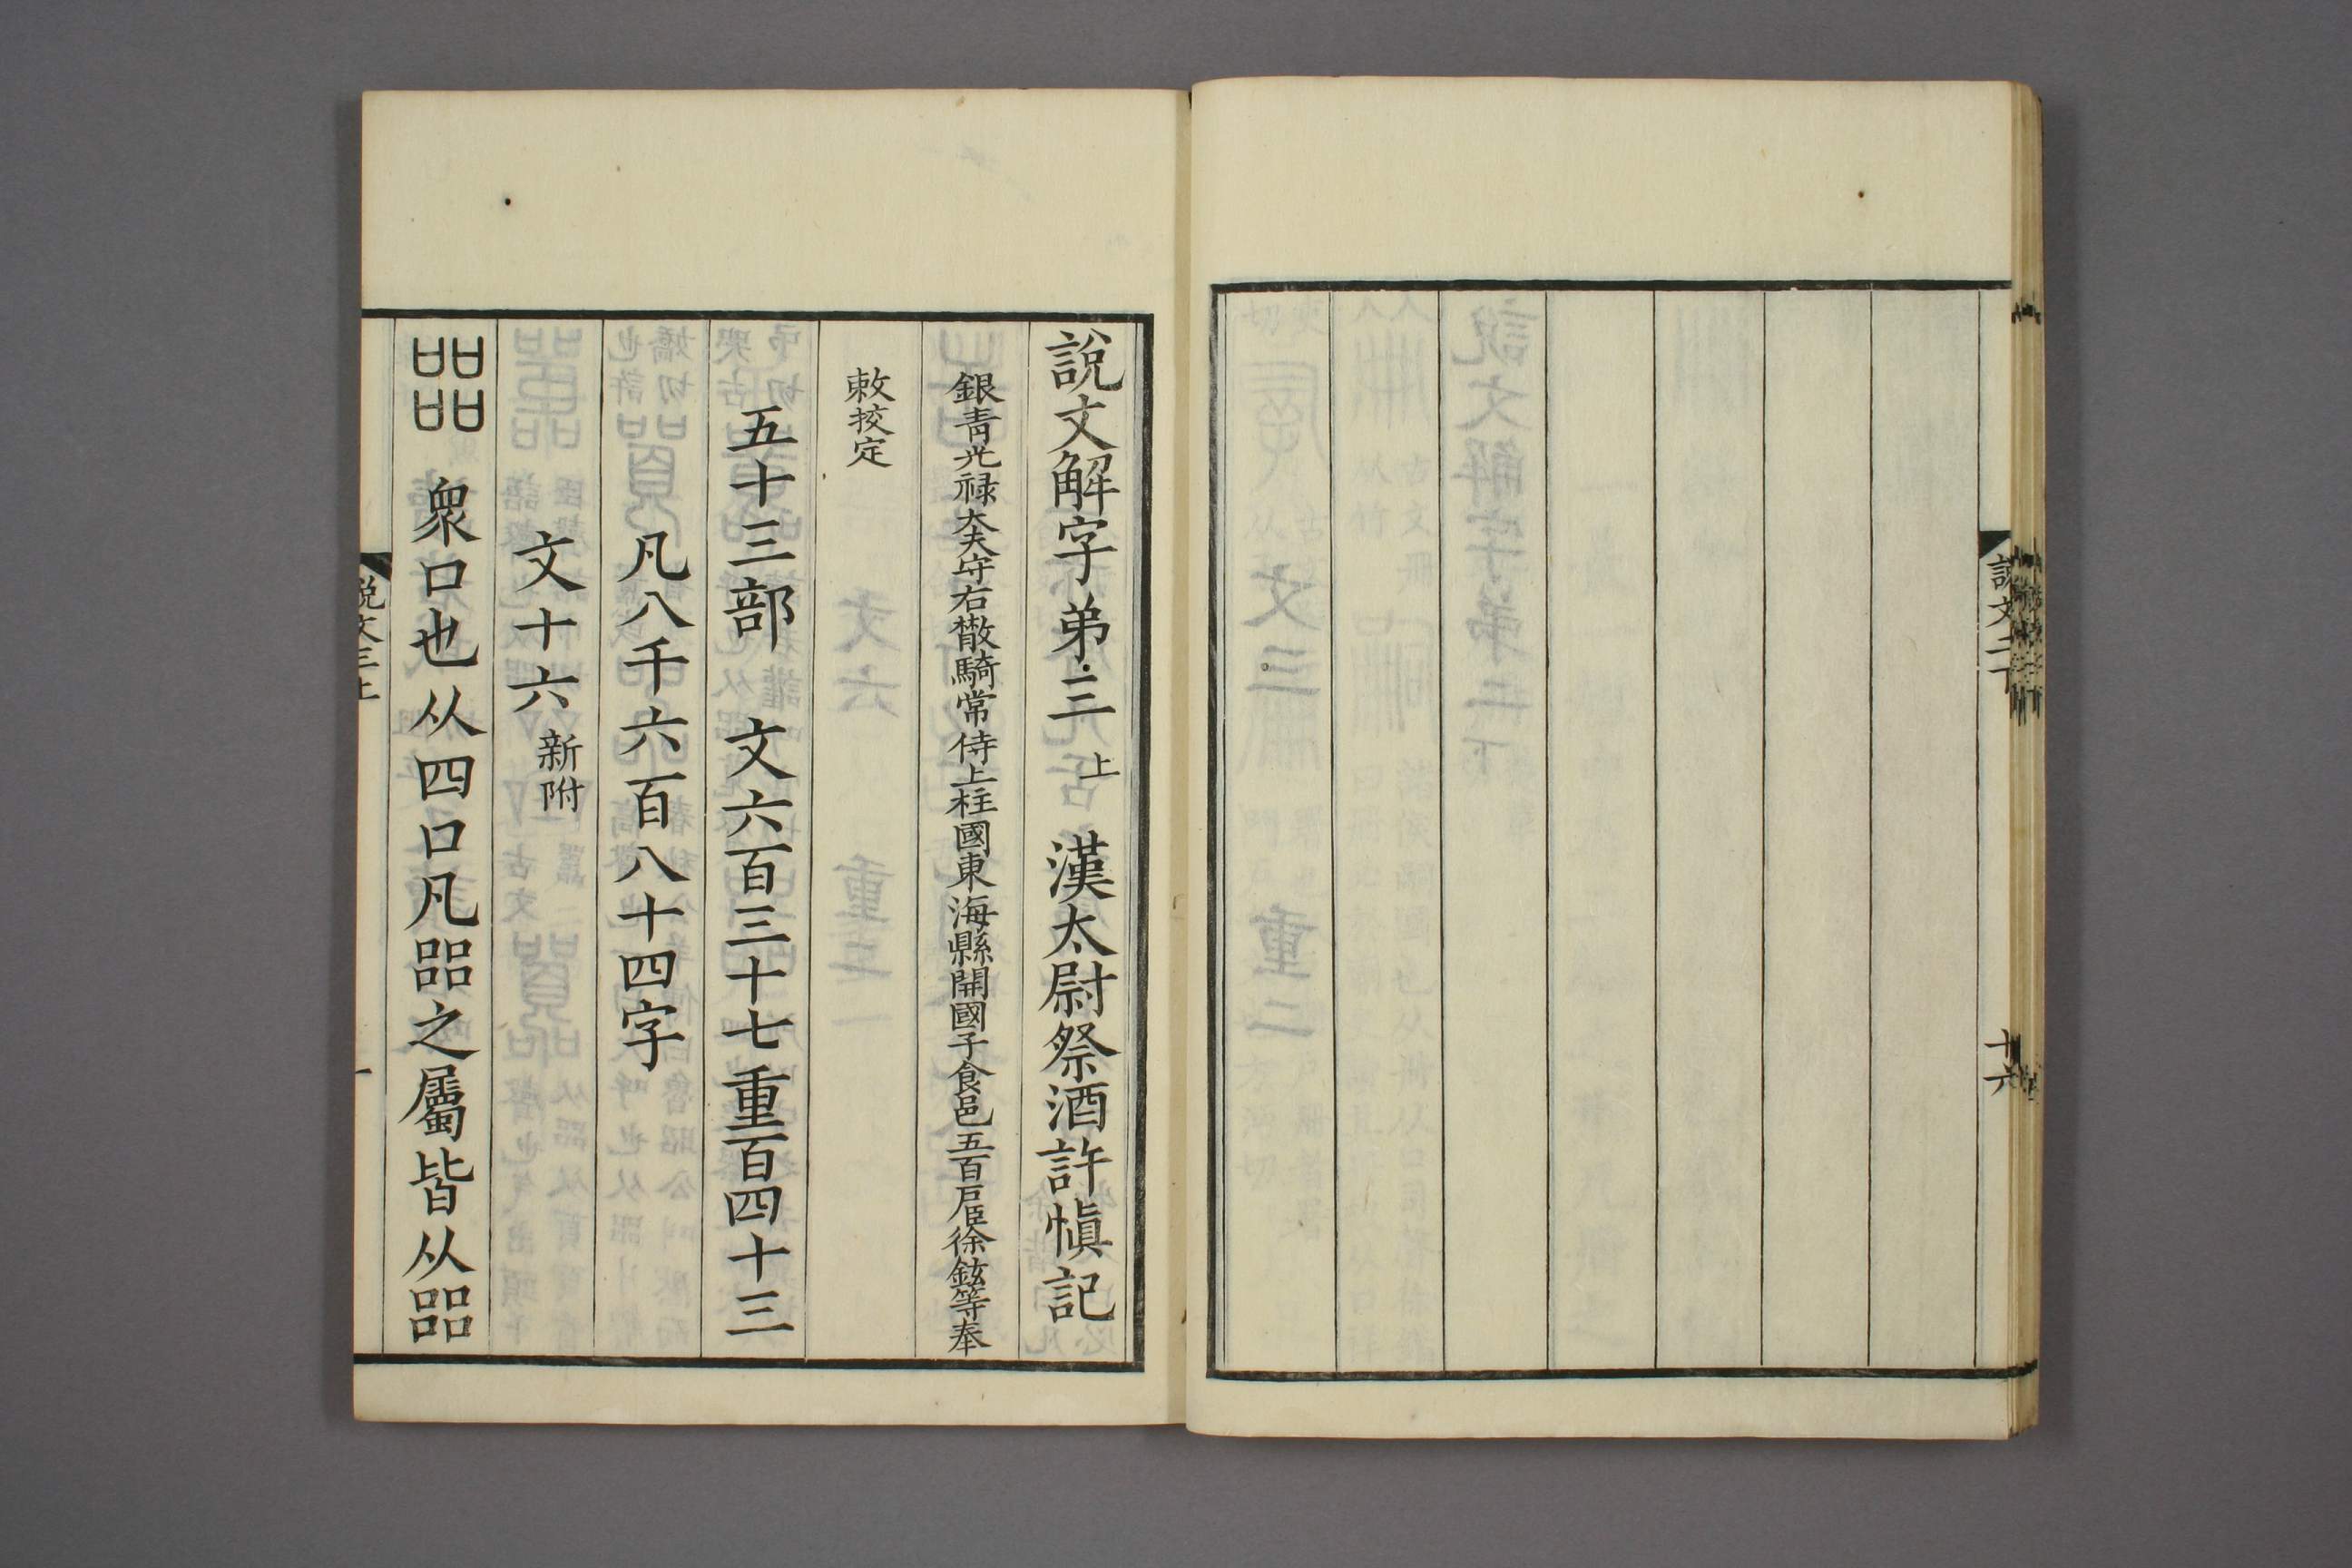 說文二下
十六
說文解字弟三上 漢太尉祭酒許慎記
銀青光禄大夫守右散騎常侍上柱國東海縣開國子食邑五百戶臣徐鉉等奉
敕挍定
五十三部 文六百三十七 重百四十三
凡八千六百八十四字
文十六新附
㗊 衆口也从四口凡㗊之屬皆从㗊
說文三上
一